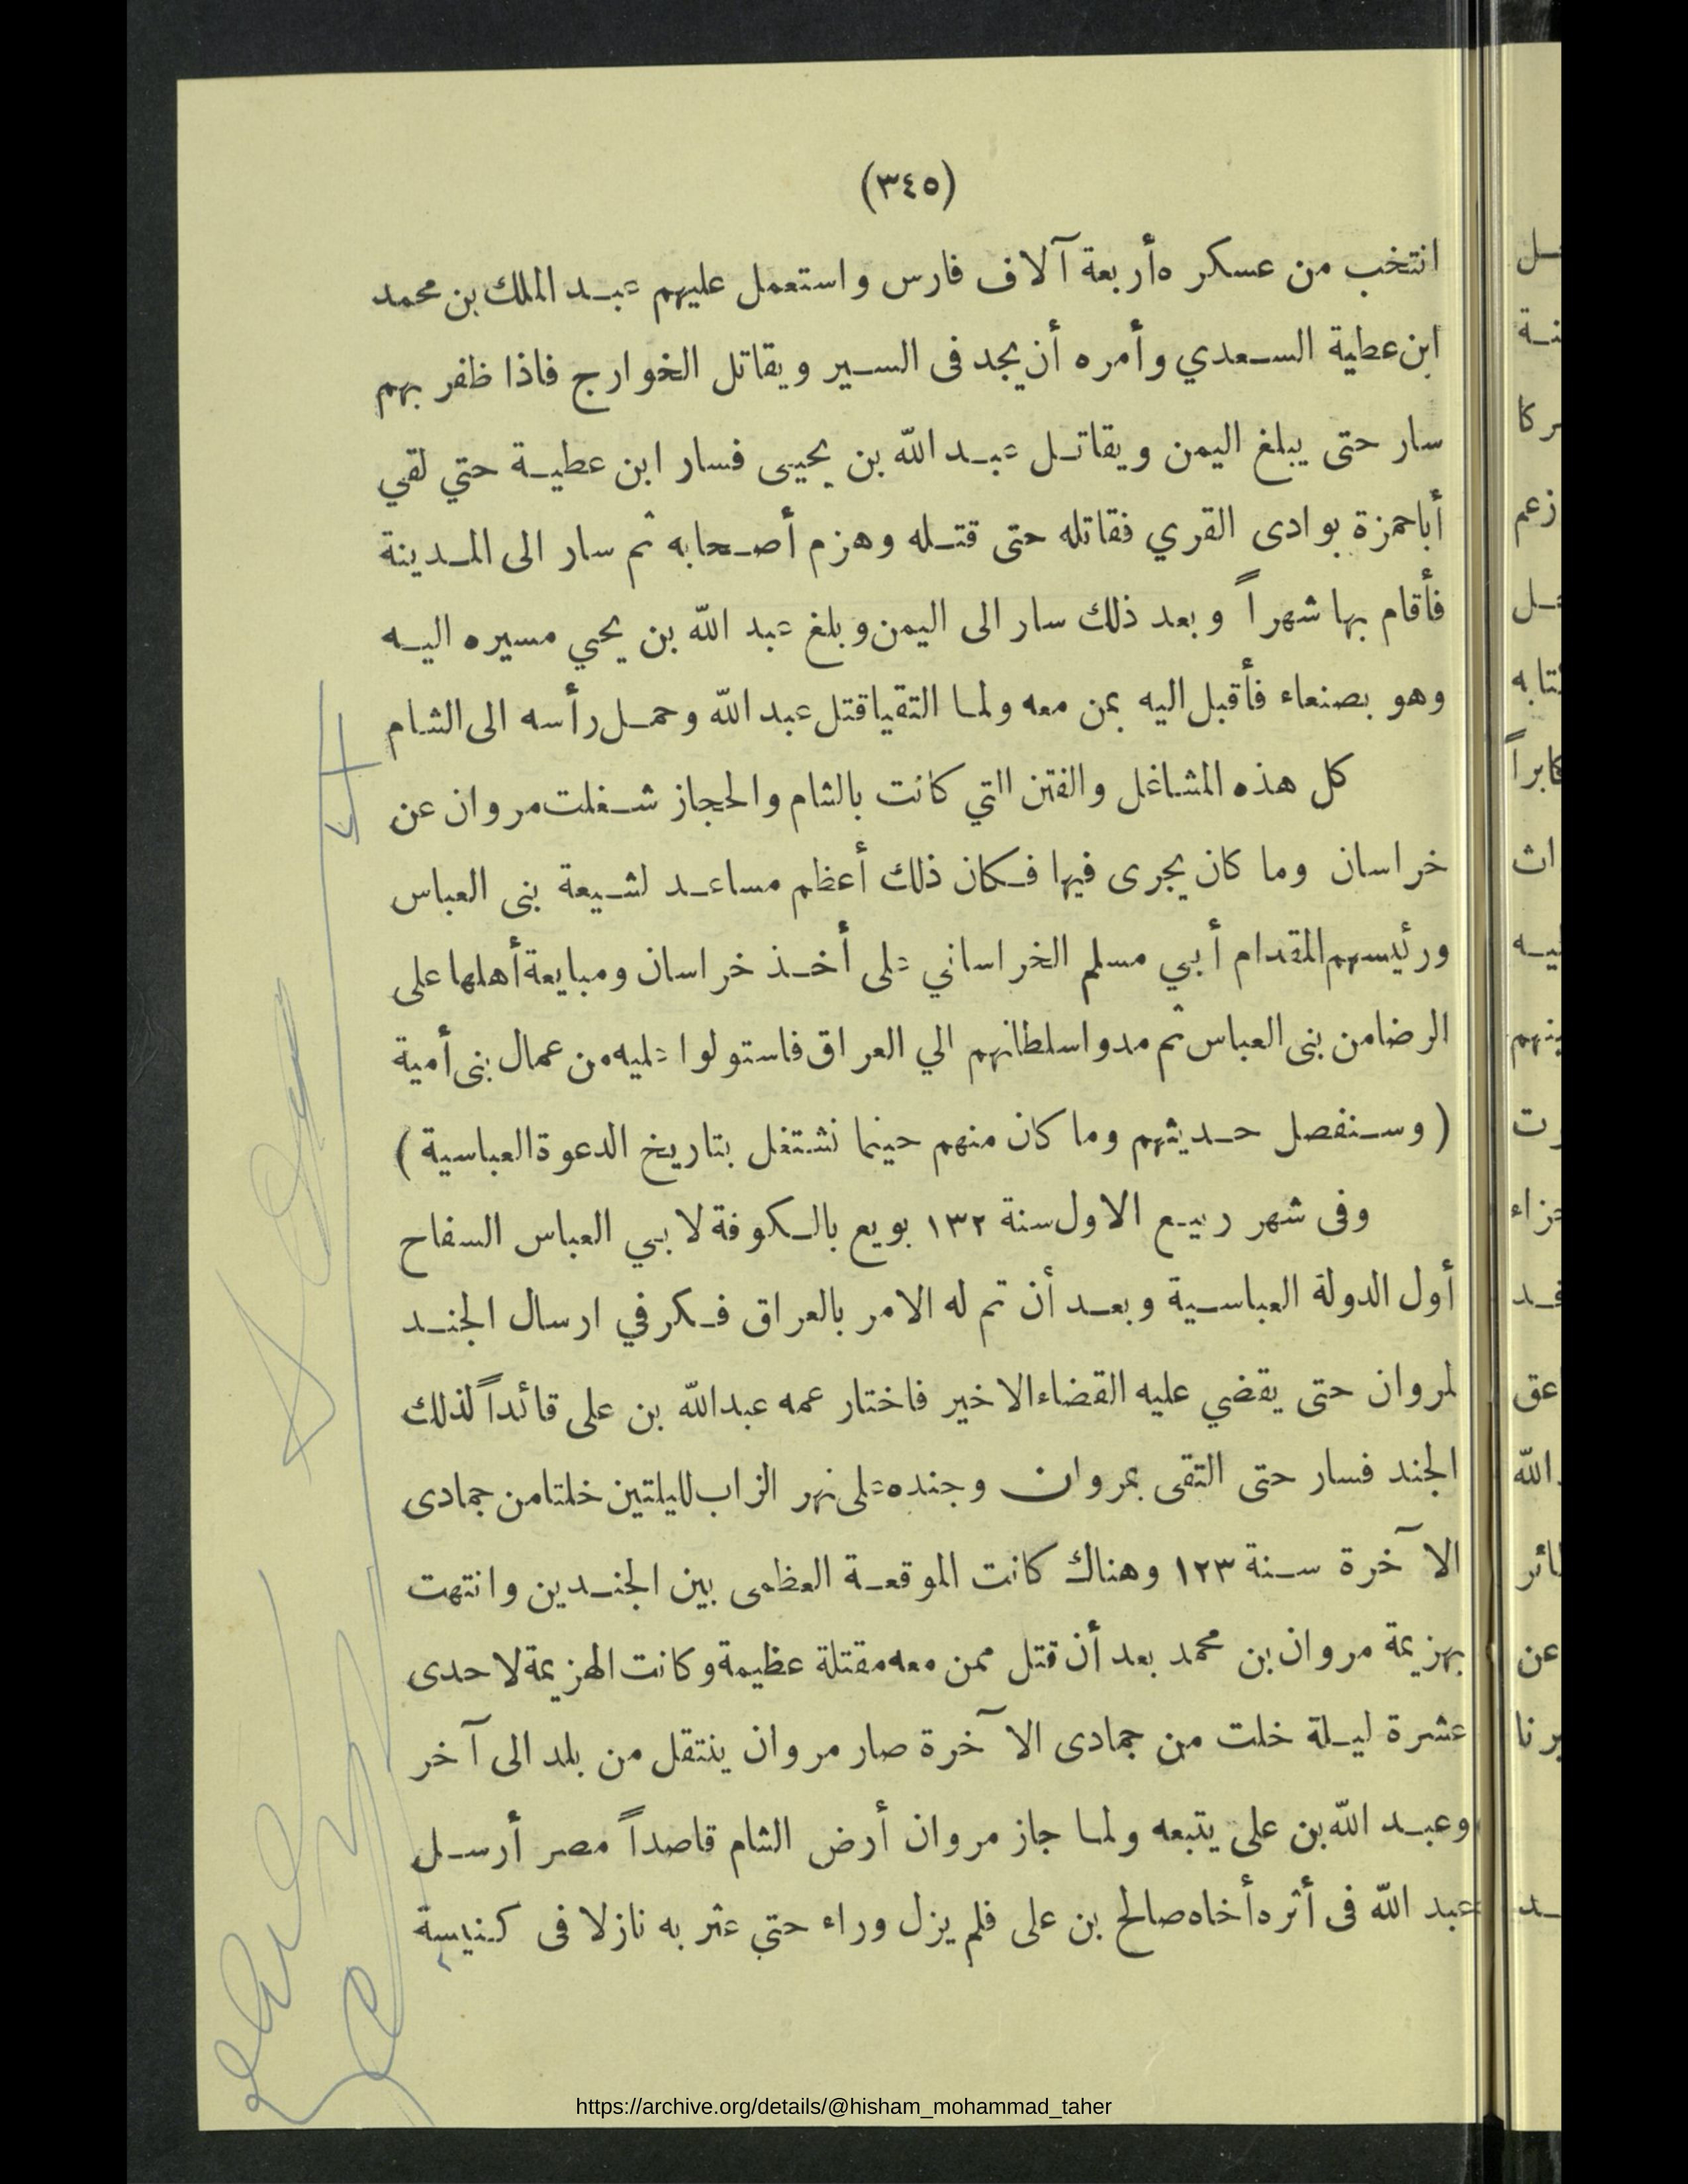 (٣٤٥)
انتخب من عسكره أربعة آلاف فارس واستعمل عليهم عبد الملك بن محمد
ابن عطية السعدي وأمره أن يجد فى السير ويقاتل الخوارج فاذا ظفر بهم
سار حتى يبلغ اليمن ويقاتل عبد الله بن يحيى فسار ابن عطية حتي لقي
أبا حمزة بوادى القري فقاتله حتى قتله وهزم أصحابه ثم سار الى المدينة
فأقام بها شهراً وبعد ذلك سار الى اليمن وبلغ عبد الله بن يحيي مسيره اليه
وهو بصنعاء فأقبل اليه بمن معه ولما التقيا قتل عبد الله وحمل رأسه الى الشام
كل هذه المشاغل والفتن التي كانت بالشام والحجاز شغلت مروان عن
خراسان وما كان يجرى فيها فكان ذلك أعظم مساعد لشيعة بنى العباس
ورئيسهم المقدام أبي مسلم الخراساني على أخذ خراسان ومبايعة أهلها على
الرضا من بنى العباس ثم مدوا سلطانهم الي العراق فاستولوا عليه من عمال بنى أمية
(وسنفصل حديثهم وما كان منهم حينما نشتغل بتاريخ الدعوة العباسية)
وفى شهر ربيع الاول سنة ١٣٢ بويع بالكوفة لابي العباس السفاح
أول الدولة العباسية وبعد أن تم له الامر بالعراق فكر في ارسال الجند
لمروان حتى يقضي عليه القضاء الاخير فاختار عمه عبد الله بن على قائداً لذلك
الجند فسار حتى التقى بمروان وجنده على نهر الزاب لليلتين خلتا من جمادى
الآخرة سنة ١٢٣ وهناك كانت الموقعة العظمى بين الجندين وانتهت
بهزيمة مروان بن محمد بعد أن قتل ممن معه مقتلة عظيمة وكانت الهزيمة لاحدى
عشرة ليلة خلت من جمادى الآخرة صار مروان ينتقل من بلد الى آخر
وعبد الله بن على يتبعه ولما جاز مروان أرض الشام قاصداً مصر أرسل
عبد الله فى أثره أخاه صالح بن على فلم يزل وراء حتي عثر به نازلا فى كنيسة
https://archive.org/details/@hisham_mohammad_taher